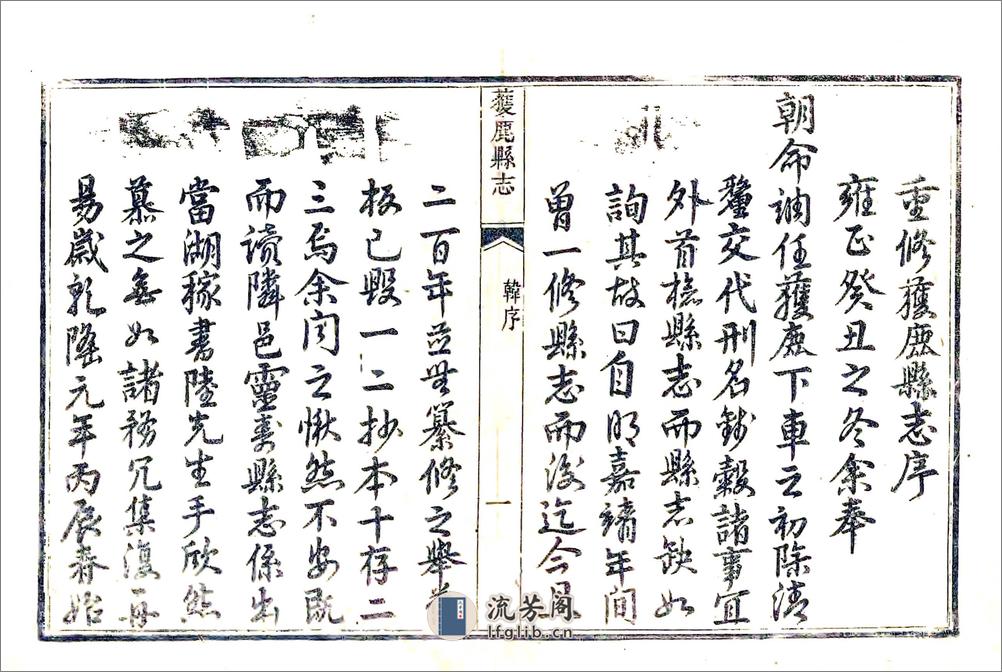 重修獲鹿縣志序
雍正癸丑之冬余奉
朝命調任獲鹿下車之初除清
釐交代刑名錢穀諸事宜
外首檢縣志而縣志缺如
詢其故曰自明嘉靖年間
曾一修縣志而後迄今
獲鹿縣志
韓序
一
二百年並無纂修之舉
板已毀一二抄本十存二
三焉余聞之愀然不安既
而讀隣邑靈壽縣志係出
當湖稼書陸先生手欣然
慕之無如諸務冗集復再
易歲乾隆元年丙辰春始
流芳阁
lfglib.cn